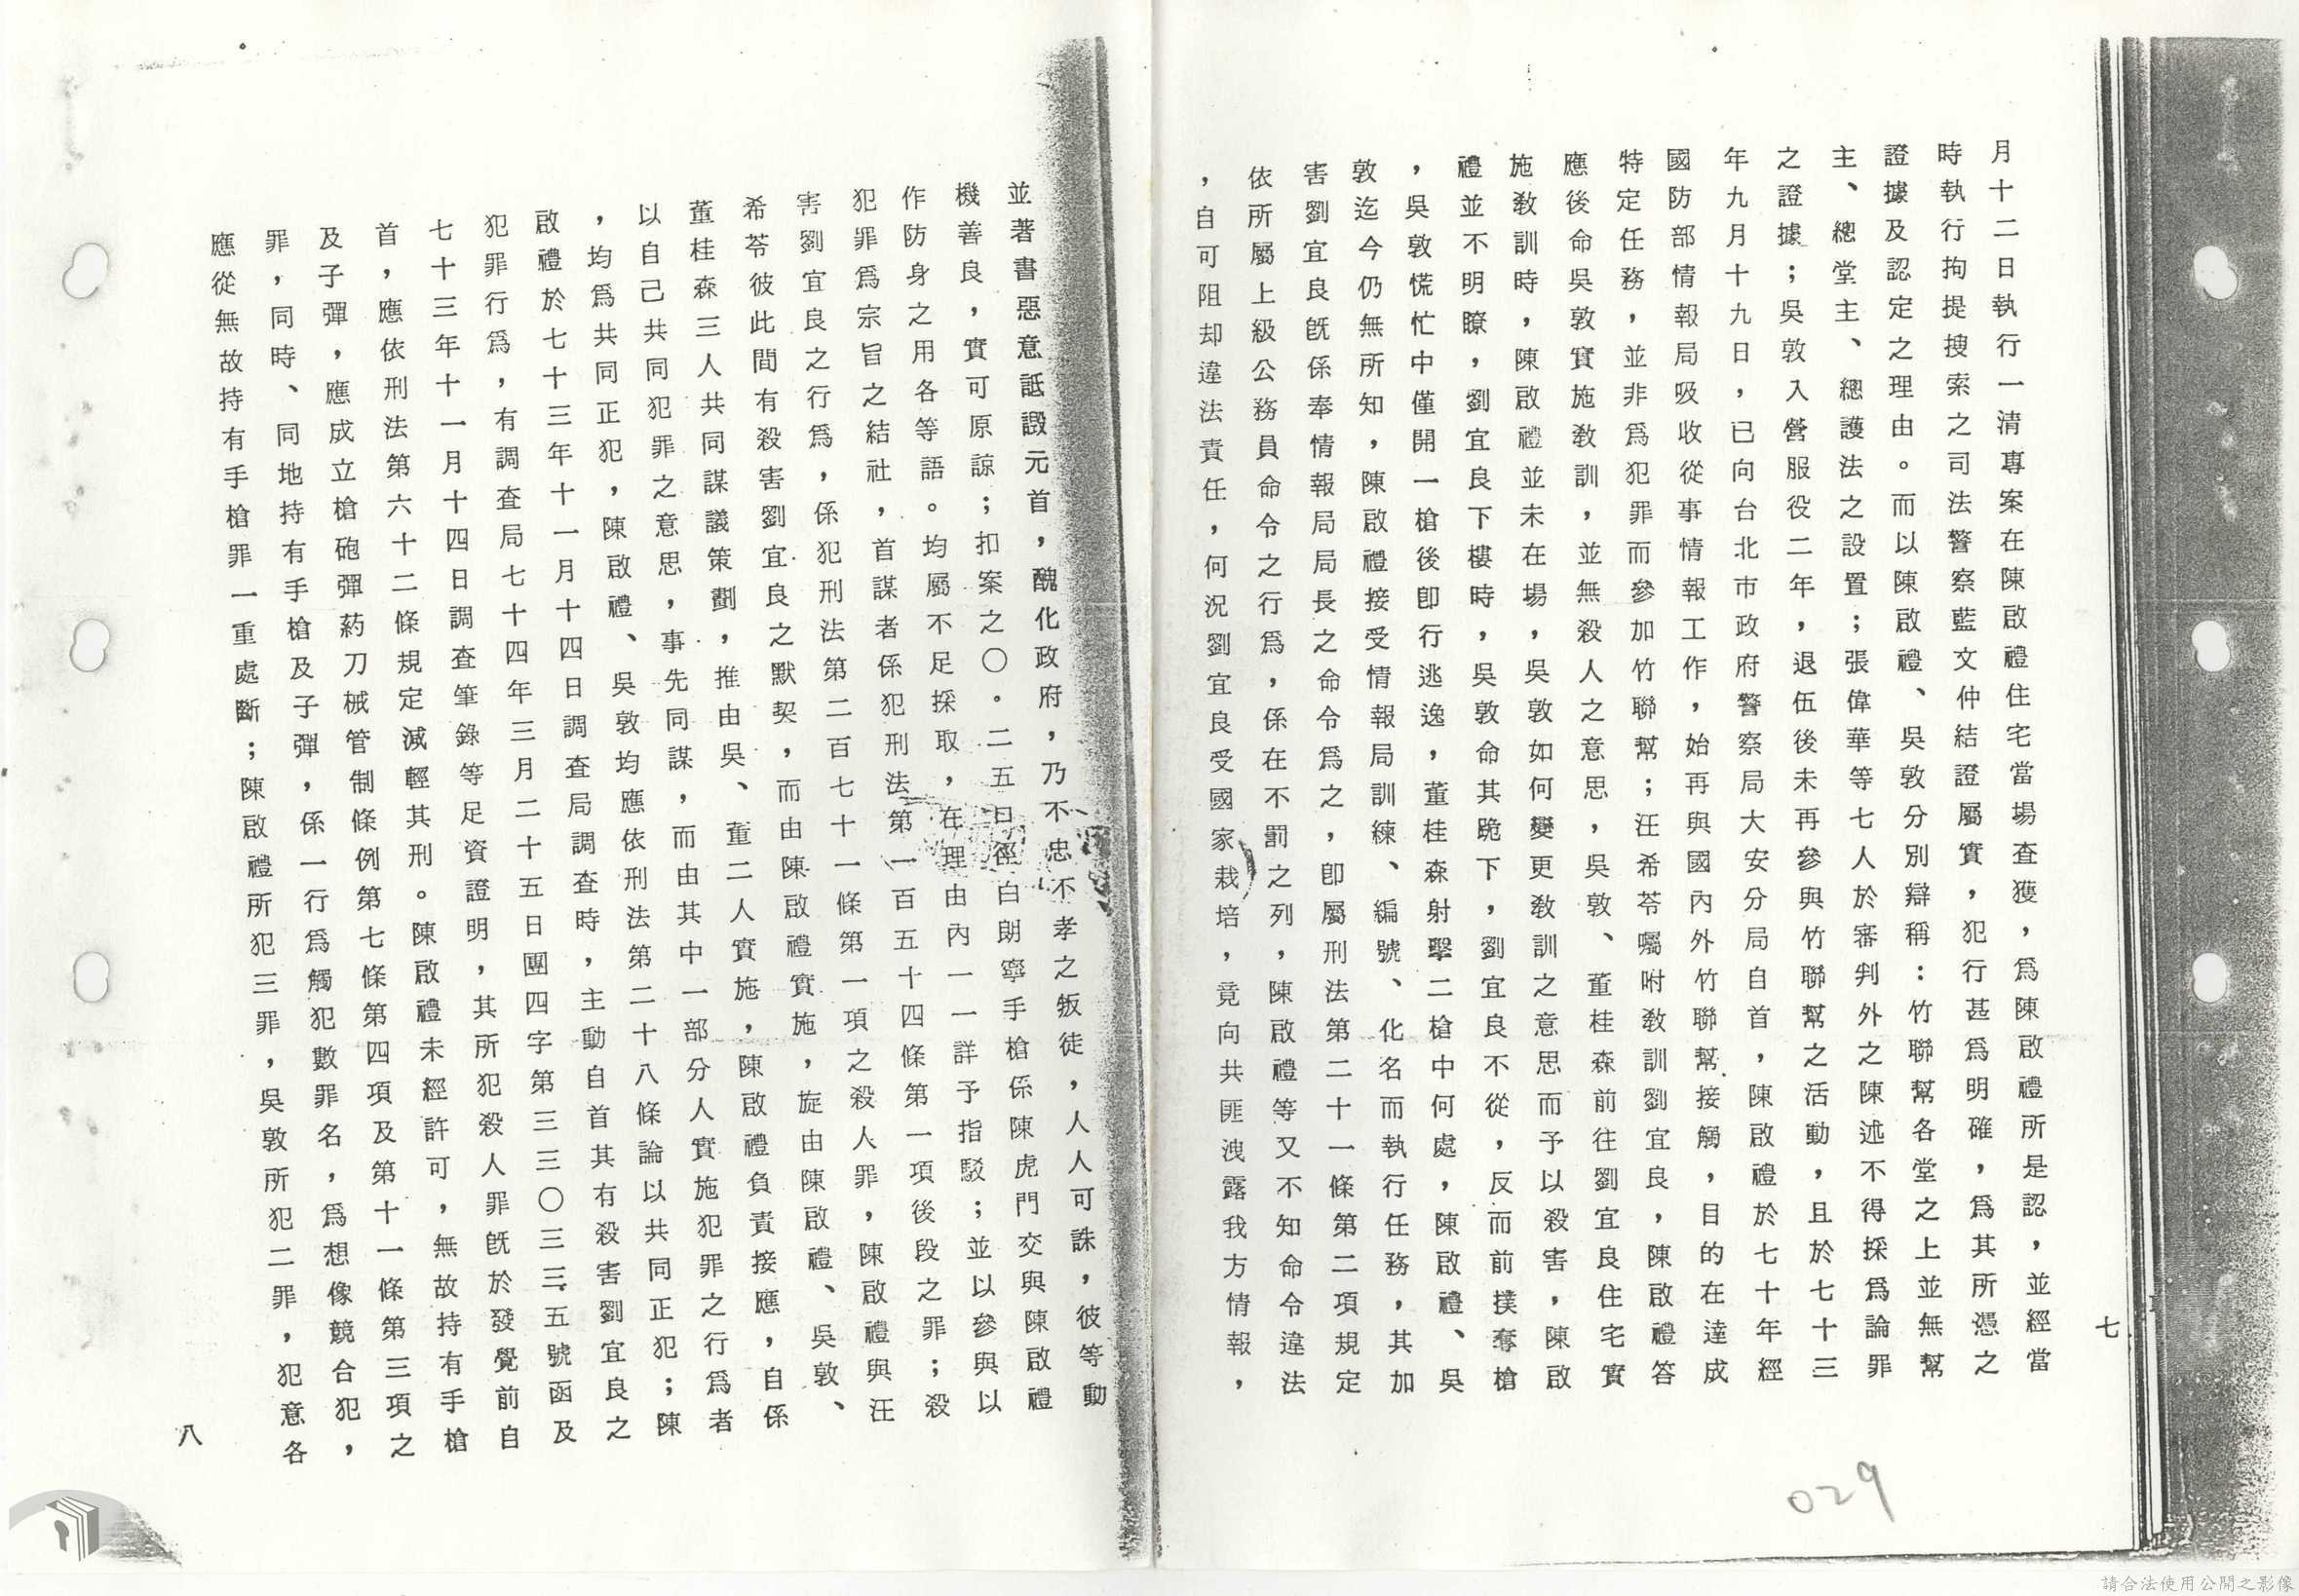 月十二日執行一清專案在陳啟禮住宅當場查獲，爲陳啟禮所是認，並經當
時執行拘提搜索之司法警察藍文仲結證屬實，犯行甚爲明確，爲其所憑之
證據及認定之理由。而以陳啟禮、吳敦分別辯稱：竹聯幫各堂之上並無幫
主、總堂主、總護法之設置；張偉華等七人於審判外之陳述不得採爲論罪
之證據；吳敦入營服役二年，退伍後未再參與竹聯幫之活動，且於七十三
年九月十九日，已向台北市政府警察局大安分局自首，陳啟禮於七十年經
國防部情報局吸收從事情報工作，始再與國內外竹聯幫接觸，目的在達成
特定任務，並非爲犯罪而參加竹聯幫；汪希苓囑咐教訓劉宜良，陳啟禮答
應後命吳敦實施教訓，並無殺人之意思，吳敦、董桂森前往劉宜良住宅實
施教訓時，陳啟禮並未在場，吳敦如何變更教訓之意思而予以殺害，陳啟
禮並不明瞭，劉宜良下樓時，吳敦命其跪下，劉宜良不從，反而前撲奪槍
，吳敦慌忙中僅開一槍後卽行逃逸，董桂森射擊二槍中何處，陳啟禮、吳
敦迄今仍無所知，陳啟禮接受情報局訓練、編號、化名而執行任務，其加
害劉宜良旣係奉情報局局長之命令爲之，卽屬刑法第二十一條第二項規定
依所屬上級公務員命令之行爲，係在不罰之列，陳啟禮等又不知命令違法
，自可阻却違法責任，何況劉宜良受國家栽培，竟向共匪洩露我方情報，
七
029
並著書惡意詆譭元首，醜化政府，乃不忠不孝之叛徒，人人可誅，彼等動
機善良，實可原諒；扣案之〇。二五口徑白朗寧手槍係陳虎門交與陳啟禮
作防身之用各等語。均屬不足採取，在理由內一一詳予指駁；並以參與以
犯罪爲宗旨之結社，首謀者係犯刑法第一百五十四條第一項後段之罪；殺
害劉宜良之行爲，係犯刑法第二百七十一條第一項之殺人罪，陳啟禮與汪
希苓彼此間有殺害劉宜良之默契，而由陳啟禮實施，旋由陳啟禮、吳敦、
董桂森三人共同謀議策劃，推由吳、董二人實施，陳啟禮負責接應，自係
以自己共同犯罪之意思，事先同謀，而由其中一部分人實施犯罪之行爲者
，均爲共同正犯，陳啟禮、吳敦均應依刑法第二十八條論以共同正犯；陳
啟禮於七十三年十一月十四日調查局調查時，主動自首其有殺害劉宜良之
犯罪行爲，有調查局七十四年三月二十五日團四字第三三〇三三五號函及
七十三年十一月十四日調查筆錄等足資證明，其所犯殺人罪旣於發覺前自
首，應依刑法第六十二條規定減輕其刑。陳啟禮未經許可，無故持有手槍
及子彈，應成立槍砲彈葯刀械管制條例第七條第四項及第十一條第三項之
罪，同時、同地持有手槍及子彈，係一行爲觸犯數罪名，爲想像競合犯，
應從無故持有手槍罪一重處斷；陳啟禮所犯三罪，吳敦所犯二罪，犯意各
八
請合法使用公開之影像